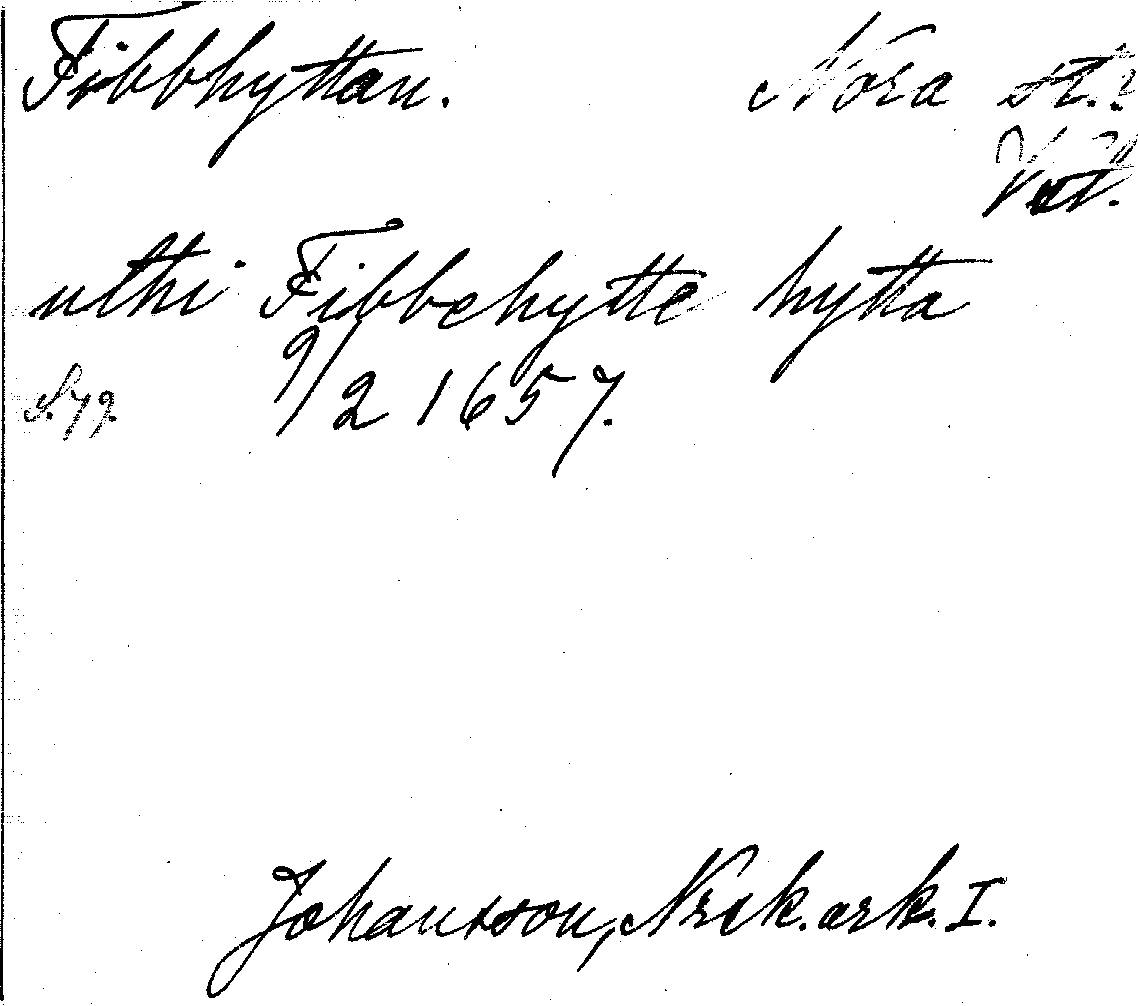 Fibbhyttan. Nora st.?
Vstl.
uthi Fibbehytte hytta
S.79. 9/2 1657.
Johansson, Nrck.ark. I.